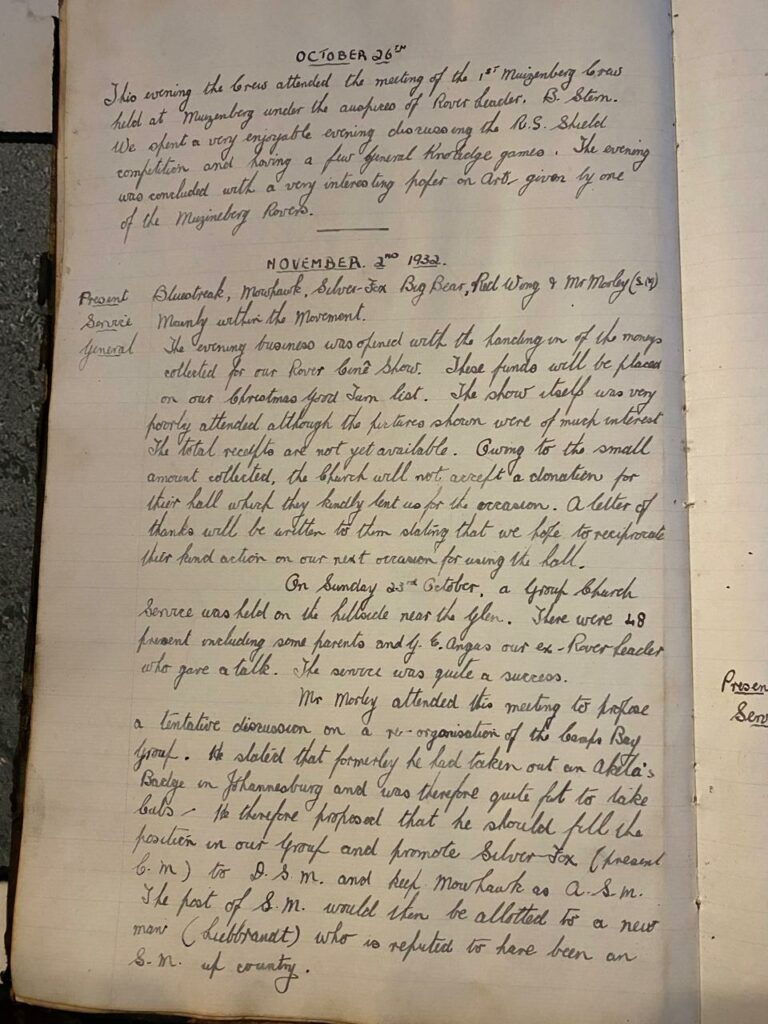 OCTOBER 26TH
This evening the Crew attended the meeting of the 1ST Muizenberg Crew
held at Muizenberg under the auspices of Rover Leader. B. Stern.
We spent a very enjoyable evening discussing the R.S. Shield
competition and having a few General Knowledge games. The evening
was concluded with a very interesting paper on Art, given by one
of the Muzineberg Rovers.
NOVEMBER. 2ND 1932.
Present Bluestreak, Mowhawk, Silver-Fox Big Bear, Red Wing & Mr Morley (S.M)
Service Mainly within the Movement.
General The evening business was opened with the handing in of the moneys
collected for our Rover Cinê Show. These funds will be placed
on our Christmas Good Turn list. The show itself was very
poorly attended although the pictures shown were of much interest
The total receipts are not yet available. Owing to the small
amount collected, the Church will not accept a donation for
their hall which they kindly lent us for the occasion. A letter of
thanks will be written to them stating that we hope to reciprocate
their kind action on our next occasion for using the hall.
On Sunday 23rd October, a Group Church
Service was held on the hillside near the Glen. There were 48
present including some parents and G. E. Angus our ex-Rover Leader
who gave a talk. The service was quite a success.
Mr Morley attended this meeting to propose
a tentative discussion on a re-organisation of the Camps Bay
Group. He stated that formerley he had taken out an Akela's
Badge in Johannesburg and was therefore quite fit to take
Cubs - He therefore proposed that he should fill the
position in our Group and promote Silver-Fox (present
C.M.) to D.S.M. and keep Mowhawk as A.S.M.
The post of S.M. would then be allotted to a new
man (Liebbrandt) who is reputed to have been an
S.M. up country.
Presen
Serv